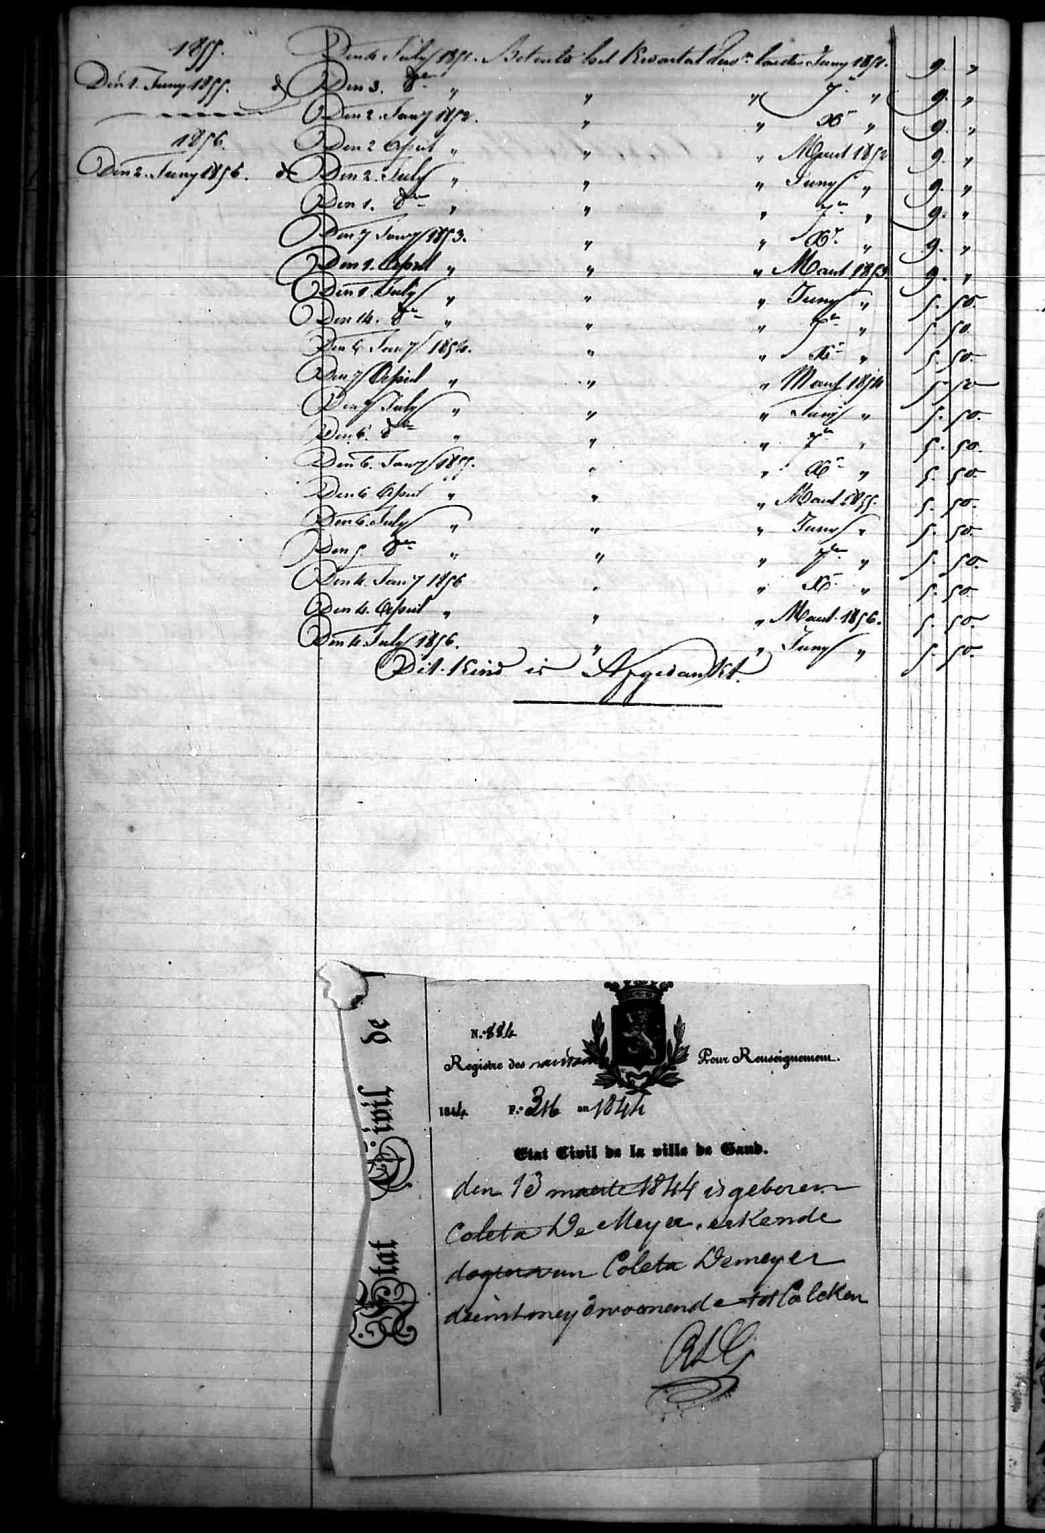 1855.
Den 1. Juny 1855. d
1856.
Den 2. Juny 1856. d
Den 4 July 1851. Betaelt het Kwartal laesten Juny 1851. 9. "
Den 3. 8er " " " 7er " 9. "
Den 2. Jany 1852. " " Xr " 9. "
Den 2 April " " " Maert 1852 9. "
Den 2. July " " " Juny " 9. "
Den 1. 8er " " " 7er " 9. "
Den 7 Jany 1853. " " Xr. " 9. "
Den 1. April " " " Maert 1853 9. "
Den 1. July " " " Juny " 5. 50.
Den 14. 8er " " " 7er " 5. 50.
Den 6 Jany 1854. " " Xr " 5. 50.
Den 7 April " " " Maert 1854 5. 50
Den 7 July " " " Juny " 5. 50.
Den 6. 8er " " " 7er " 5. 50.
Den 6. Jany 1855. " " Xr " 5. 50.
Den 6 April " " " Maert 1855. 5. 50.
Den 6. July " " " Juny " 5. 50.
Den 5. 8er " " " 7er " 5. 50.
Den 4. Jany 1856 " " Xr " 5. 50.
Den 4. April " " " Maert. 1856. 5. 50.
Den 4. July 1856. " " Juny " 5. 50.
Dit Kind is Afgedankt.
N.o 884
Registre des naissances Pour Renseignement.
1844 F.o 316 an 1844
Etat Civil de la ville de Gand.
den 13 maerte 1844 is geboren
Coleta De Meyer. erkende
dogter van Coleta Demeyer
dienstmeyd woonende tot Calcken
Etat Civil de